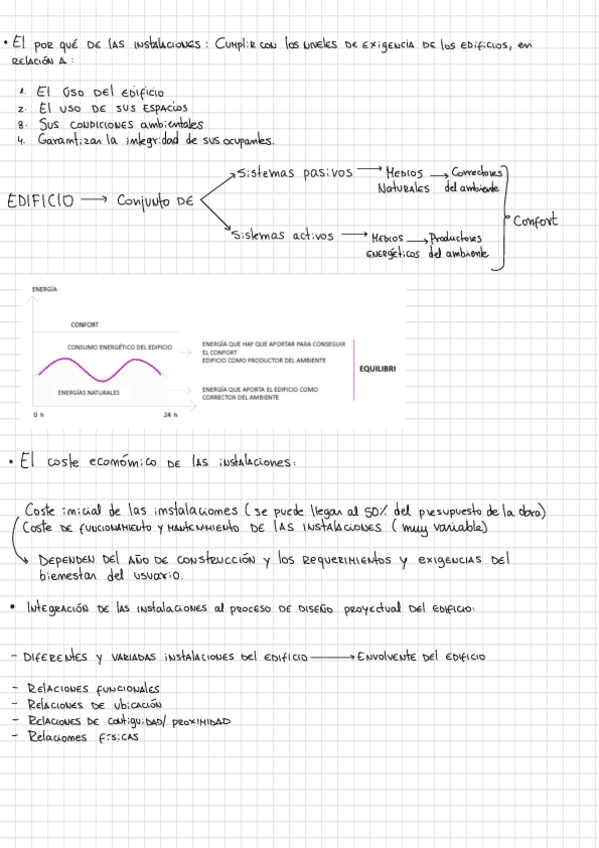 • El por qué de las instalaciones: Cumplir con los niveles de exigencia de los edificios, en
relación a:
1. El uso del edificio
2. El uso de sus espacios
3. Sus condiciones ambientales
4. Garantizar la integridad de sus ocupantes.
Sistemas pasivos → Medios → Correctores
Naturales del ambiente
EDIFICIO → Conjunto de
Confort
Sistemas activos → Medios → Productores
energéticos del ambiente
ENERGÍA
CONFORT
CONSUMO ENERGÉTICO DEL EDIFICIO
ENERGÍA QUE HAY QUE APORTAR PARA CONSEGUIR
EL CONFORT
EDIFICIO COMO PRODUCTOR DEL AMBIENTE
EQUILIBRI
ENERGÍAS NATURALES
ENERGÍA QUE APORTA EL EDIFICIO COMO
CORRECTOR DEL AMBIENTE
0 h
24 h
• El coste económico de las instalaciones:
Coste inicial de las instalaciones (se puede llegar al 50% del presupuesto de la obra)
Coste de funcionamiento y mantenimiento de las instalaciones (muy variable)
Dependen del año de construcción y los requerimientos y exigencias del
bienestar del usuario.
• Integración de las instalaciones al proceso de diseño proyectual del edificio:
- Diferentes y variadas instalaciones del edificio → Envolvente del edificio
- Relaciones funcionales
- Relaciones de ubicación
- Relaciones de contiguidad/ proximidad
- Relaciones físicas